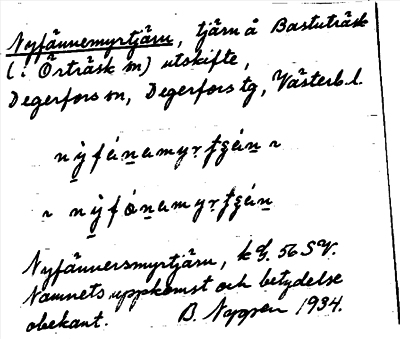 Nyfännemyrtjärn, tjärn å Bastuträsk
(i Örträsk sn) utskifte,
Degerfors sn, Degerfors tg, Västerb. l.
Nyfännersmyrtjärn, k bl. 56 SV.
Namnets uppkomst och betydelse
obekant. B. Nygren 1934.